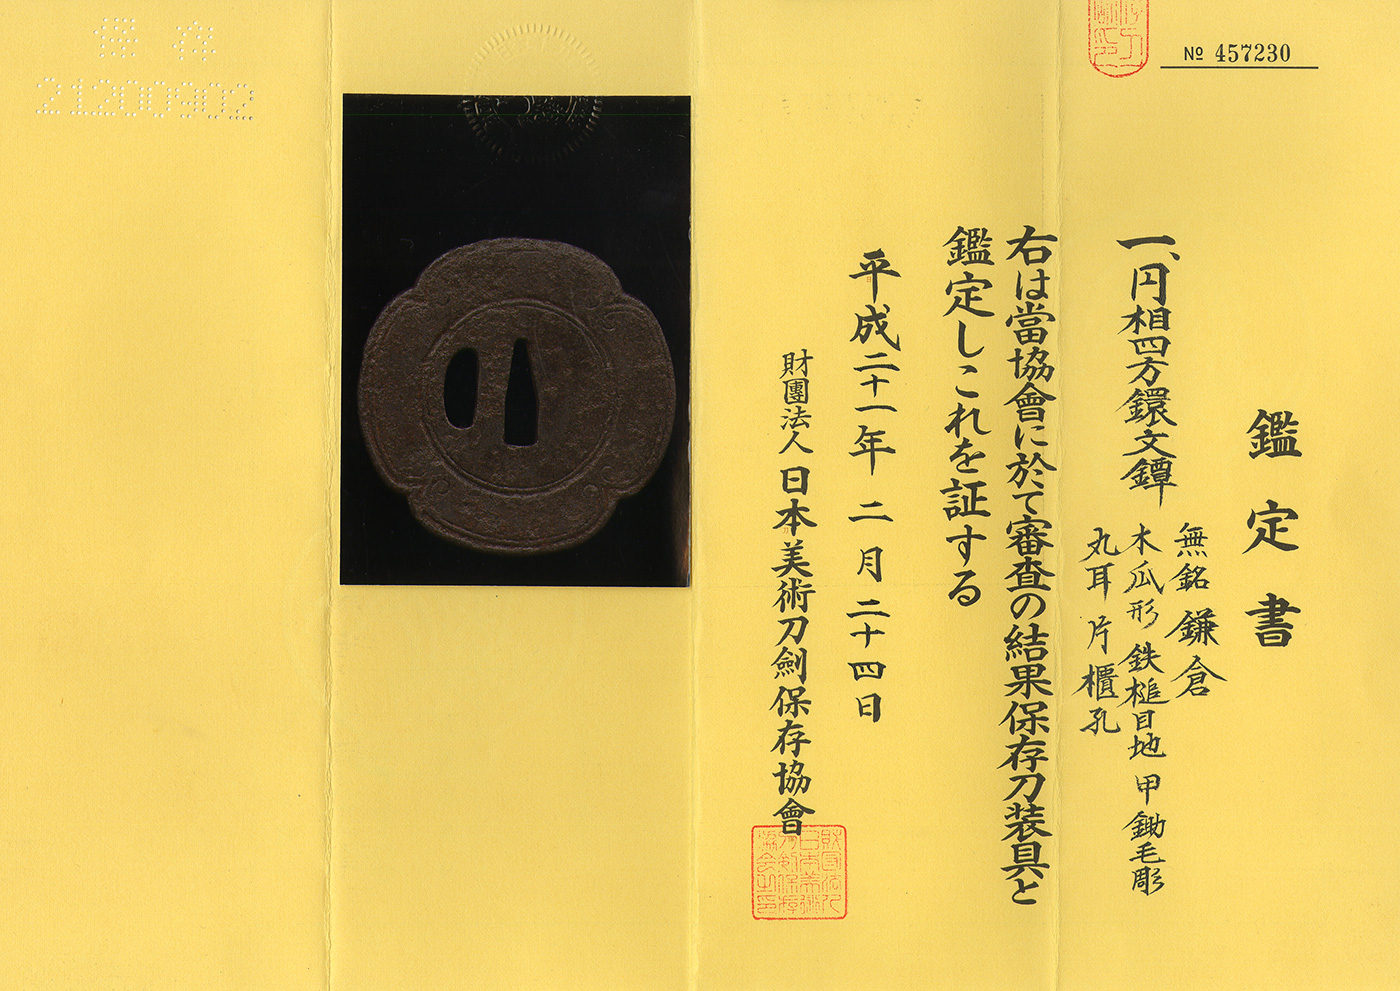 № 457230
鑑定書
一、円相四方鐶文鐔
無銘 鎌倉
木瓜形 鉄槌目地 甲鋤毛彫
丸耳 片櫃孔
右は當協會に於て審査の結果保存刀装具と
鑑定しこれを証する
平成二十一年 二月 二十四日
財團法人 日本美術刀劍保存協會
保存
21200902